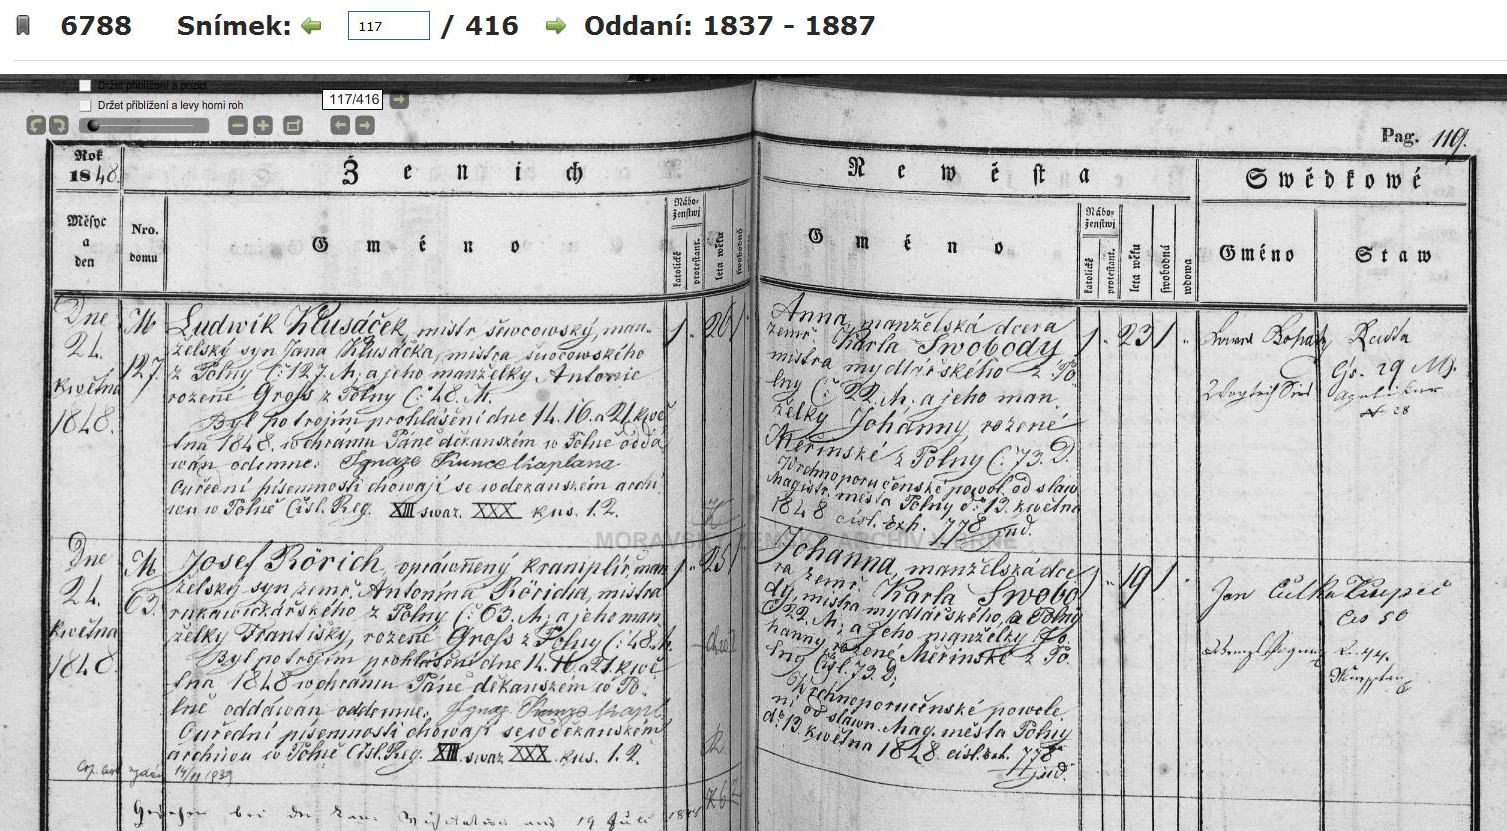 6788 Snímek: 117 / 416 Oddaní: 1837 - 1887
Držet přiblížení a pozici
Držet přiblížení a levy horni roh
117/416
Pag. 119.
Rok
1848.
Ženich
Newěsta
Swědkowé
Měsyc
a
den
Nro.
domu
Gméno
Nábo-
ženstwj
katolické
protestant.
leta wěku
swobodný
Gméno
Nábo-
ženstwj
katolické
protestant.
leta wěku
swobodná
wdowa
Gméno
Staw
Dne
24.
května
1848.
M
127.
Ludwík Klusáček, mistr šewcowský, man-
želský syn Jana Klusáčka, mistra šewcowského
z Polny Č: 127. M. a jeho manželky Antonie
rozené Gross z Polny Č: 48. M.
Byl po trojím prohlášení dne 14. 16. a 21. kwě
tna 1848. w chrámu Páně děkanském w Polné oddá
wán odemne: Ignaze Kunce kaplana
Cuřední písemnosti chowají se w děkanském archi
wu w Polné Čísl. Reg. XIII swaz. XXX kus. 12.
1 26 1
Anna, manželská dcera
zemř. Karla Swobody
mistra mydlářského z Po
lny Č: 22. M. a jeho man
želky Johanny, rozené
Měřínské z Polny Č: 73. D.
Wrchnoporučenské powol. od slaw.
Magistr. města Polny do. 13. kwětna
1848 čísl. exh. 778 jud.
1 23 1
Gr. 29 M.
N 28
Dne
24.
května
1848.
M
63.
Josef Rörich, oprávněný kramplíř, man
želský syn zemř. Antonína Röricha, mistra
rukawičkářského z Polny Č: 63. M. a jeho man
želky Františky, rozené Gross z Polny Č: 48. M.
Byl po trojím prohlášení dne 14. 16. a 21. kwě
tna 1848 w chrámu Páně děkanském w Po-
lné oddáwán oddemne: Ignaz Kunze kapl.
Cuřední písemnosti chowají se w děkanském
archiwu w Polné Čísl. Reg. XIII. swaz. XXX. kus. 12.
1 25 1
Johanna, manželská dce
ra zemř. Karla Swobo
dy, mistra mydlářského, z Polny
Č 22. M. a jeho manželky Jo
hanny, rozené Měřínské z Po
lny Čísl. 73. D.
Wrchnoporučenské powole
ní od sláwn. Mag. města Polny
do. 13. kwětna 1848 čísl. exh. 778
jud.
1 19 1
Jan Čutka Kupec
Čís 50
14/11 1939
19 Juli
MORAVSKÝ ZEMSKÝ ARCHIV V BRNĚ